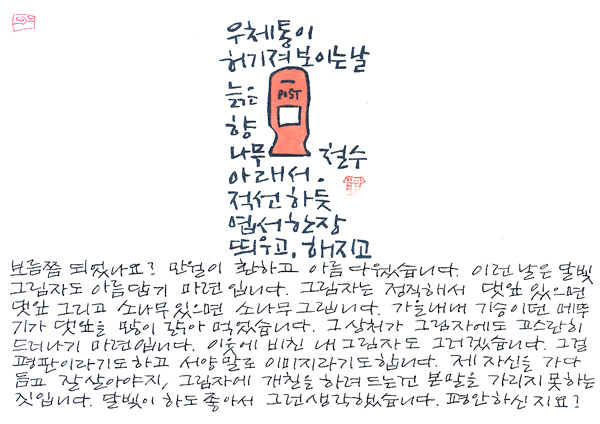 우체통이
허기져 보이는 날
늙은
POST
향
나무 철수
아래서.
적선하듯
엽서한장
띄우고, 해지고
보름쯤 되었나요? 만월이 환하고 아름다웠습니다. 이런 날은 달빛
그림자도 아름답기 마련입니다. 그림자는 정직해서 댓잎 있으면
댓잎 그리고 소나무 있으면 소나무 그립니다. 가을내내 기승이던 메뚜
기가 댓잎을 많이 갉아 먹었습니다. 그 상처가 그림자에도 고스란히
드러나기 마련입니다. 이웃에 비친 내 그림자도 그러겠습니다. 그걸
평판이라기도 하고 서양 말로 이미지라기도 합니다. 제 자신을 가다
듬고 잘 살아야지, 그림자에 개칠을 하려 드는건 본말을 가리지 못하는
짓입니다. 달빛이 하도 좋아서 그런 생각했습니다. 평안하신지요?